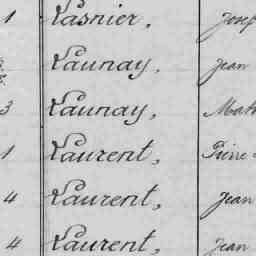 1 Lasnier, Josep
Launay, Jean
3 Launay, Math
1 Laurent, Pierre
4 Laurent, Jean
4 Laurent, Jean